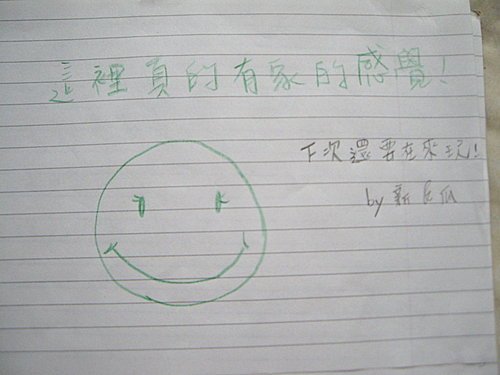 這裡真的有家的感覺!
下次還要在來玩!
by 新瓜